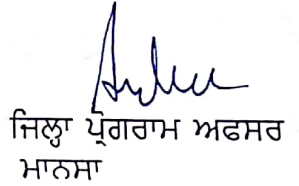 ਜਿਲ੍ਹਾ ਪ੍ਰੋਗਰਾਮ ਅਫਸਰ
ਮਾਨਸਾ